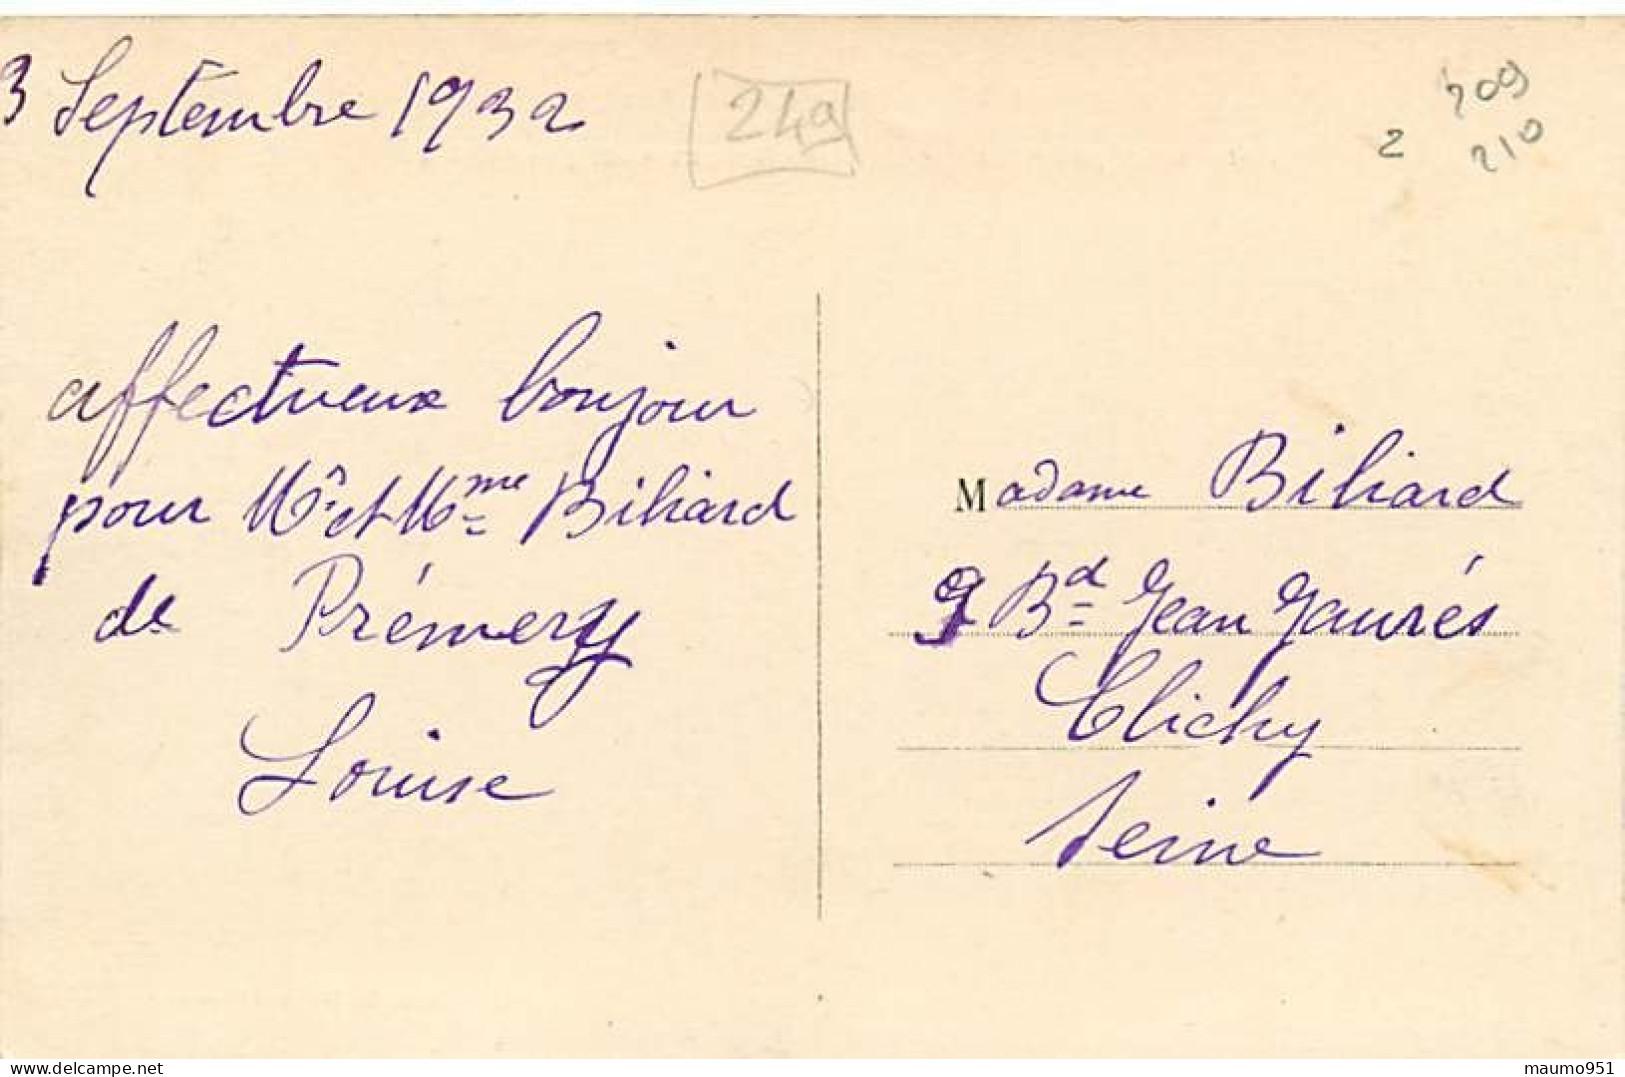 3 Septembre 1932
249
209
2 210
affectueux bonjour
pour Mr et Mme Biliard
de Prémery
Louise
Madame Biliard
9 Bd Jean Jaurés
Clichy
Seine
www.delcampe.net
maumo951